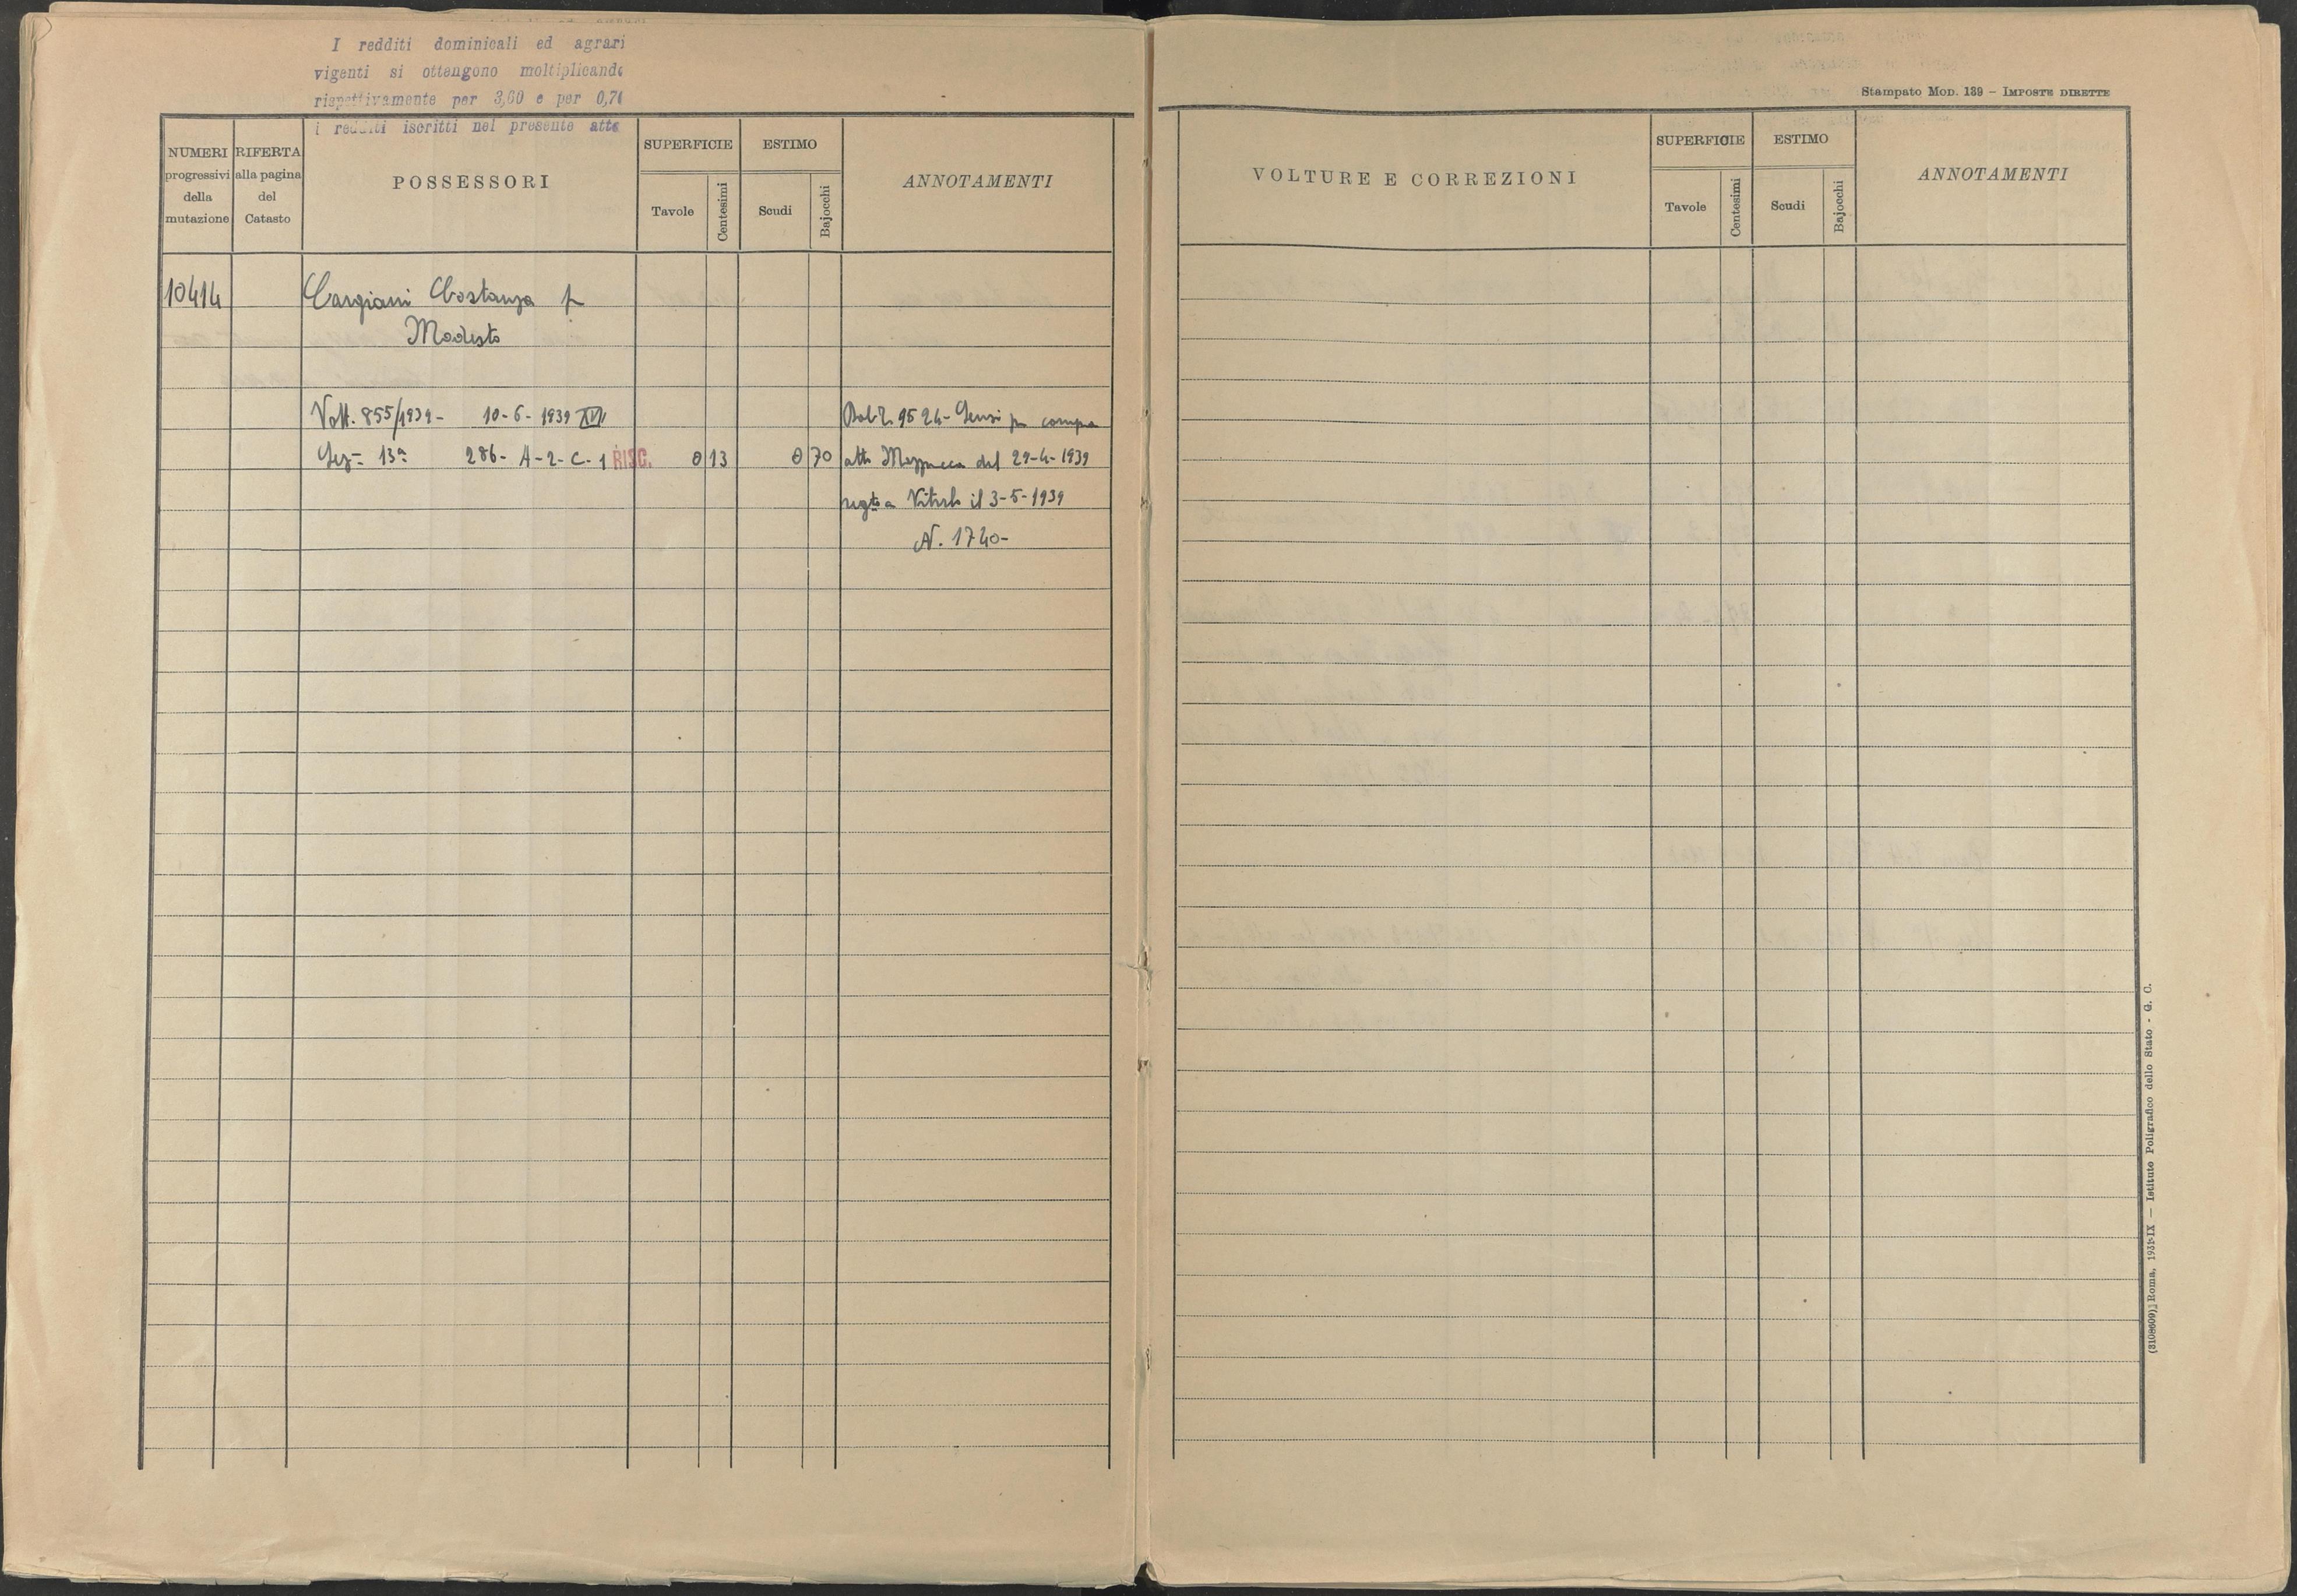 I redditi dominicali ed agrari
vigenti si ottengono moltiplicando
rispettivamente per 3,60 e per 0,74
i redditi iscritti nel presente atto
NUMERI progressivi della mutazione
RIFERTA alla pagina del Catasto
POSSESSORI
SUPERFICIE
Tavole
Centesimi
ESTIMO
Scudi
Bajocchi
ANNOTAMENTI
10414
Costanza
Modesto
Volt. 855/1939 - 10-6-1939 XVII
Sez- 13ª 286- A-2-C-1 RISC. 0 13 0 70
9524- per compra
atto del 29-4-1939
a Viterbo il 3-5-1939
N. 1740-
Stampato Mod. 139 – Imposte dirette
VOLTURE E CORREZIONI
SUPERFICIE
Tavole
Centesimi
ESTIMO
Scudi
Bajocchi
ANNOTAMENTI
(3108609) Roma, 1931-IX — Istituto Poligrafico dello Stato - G. C.